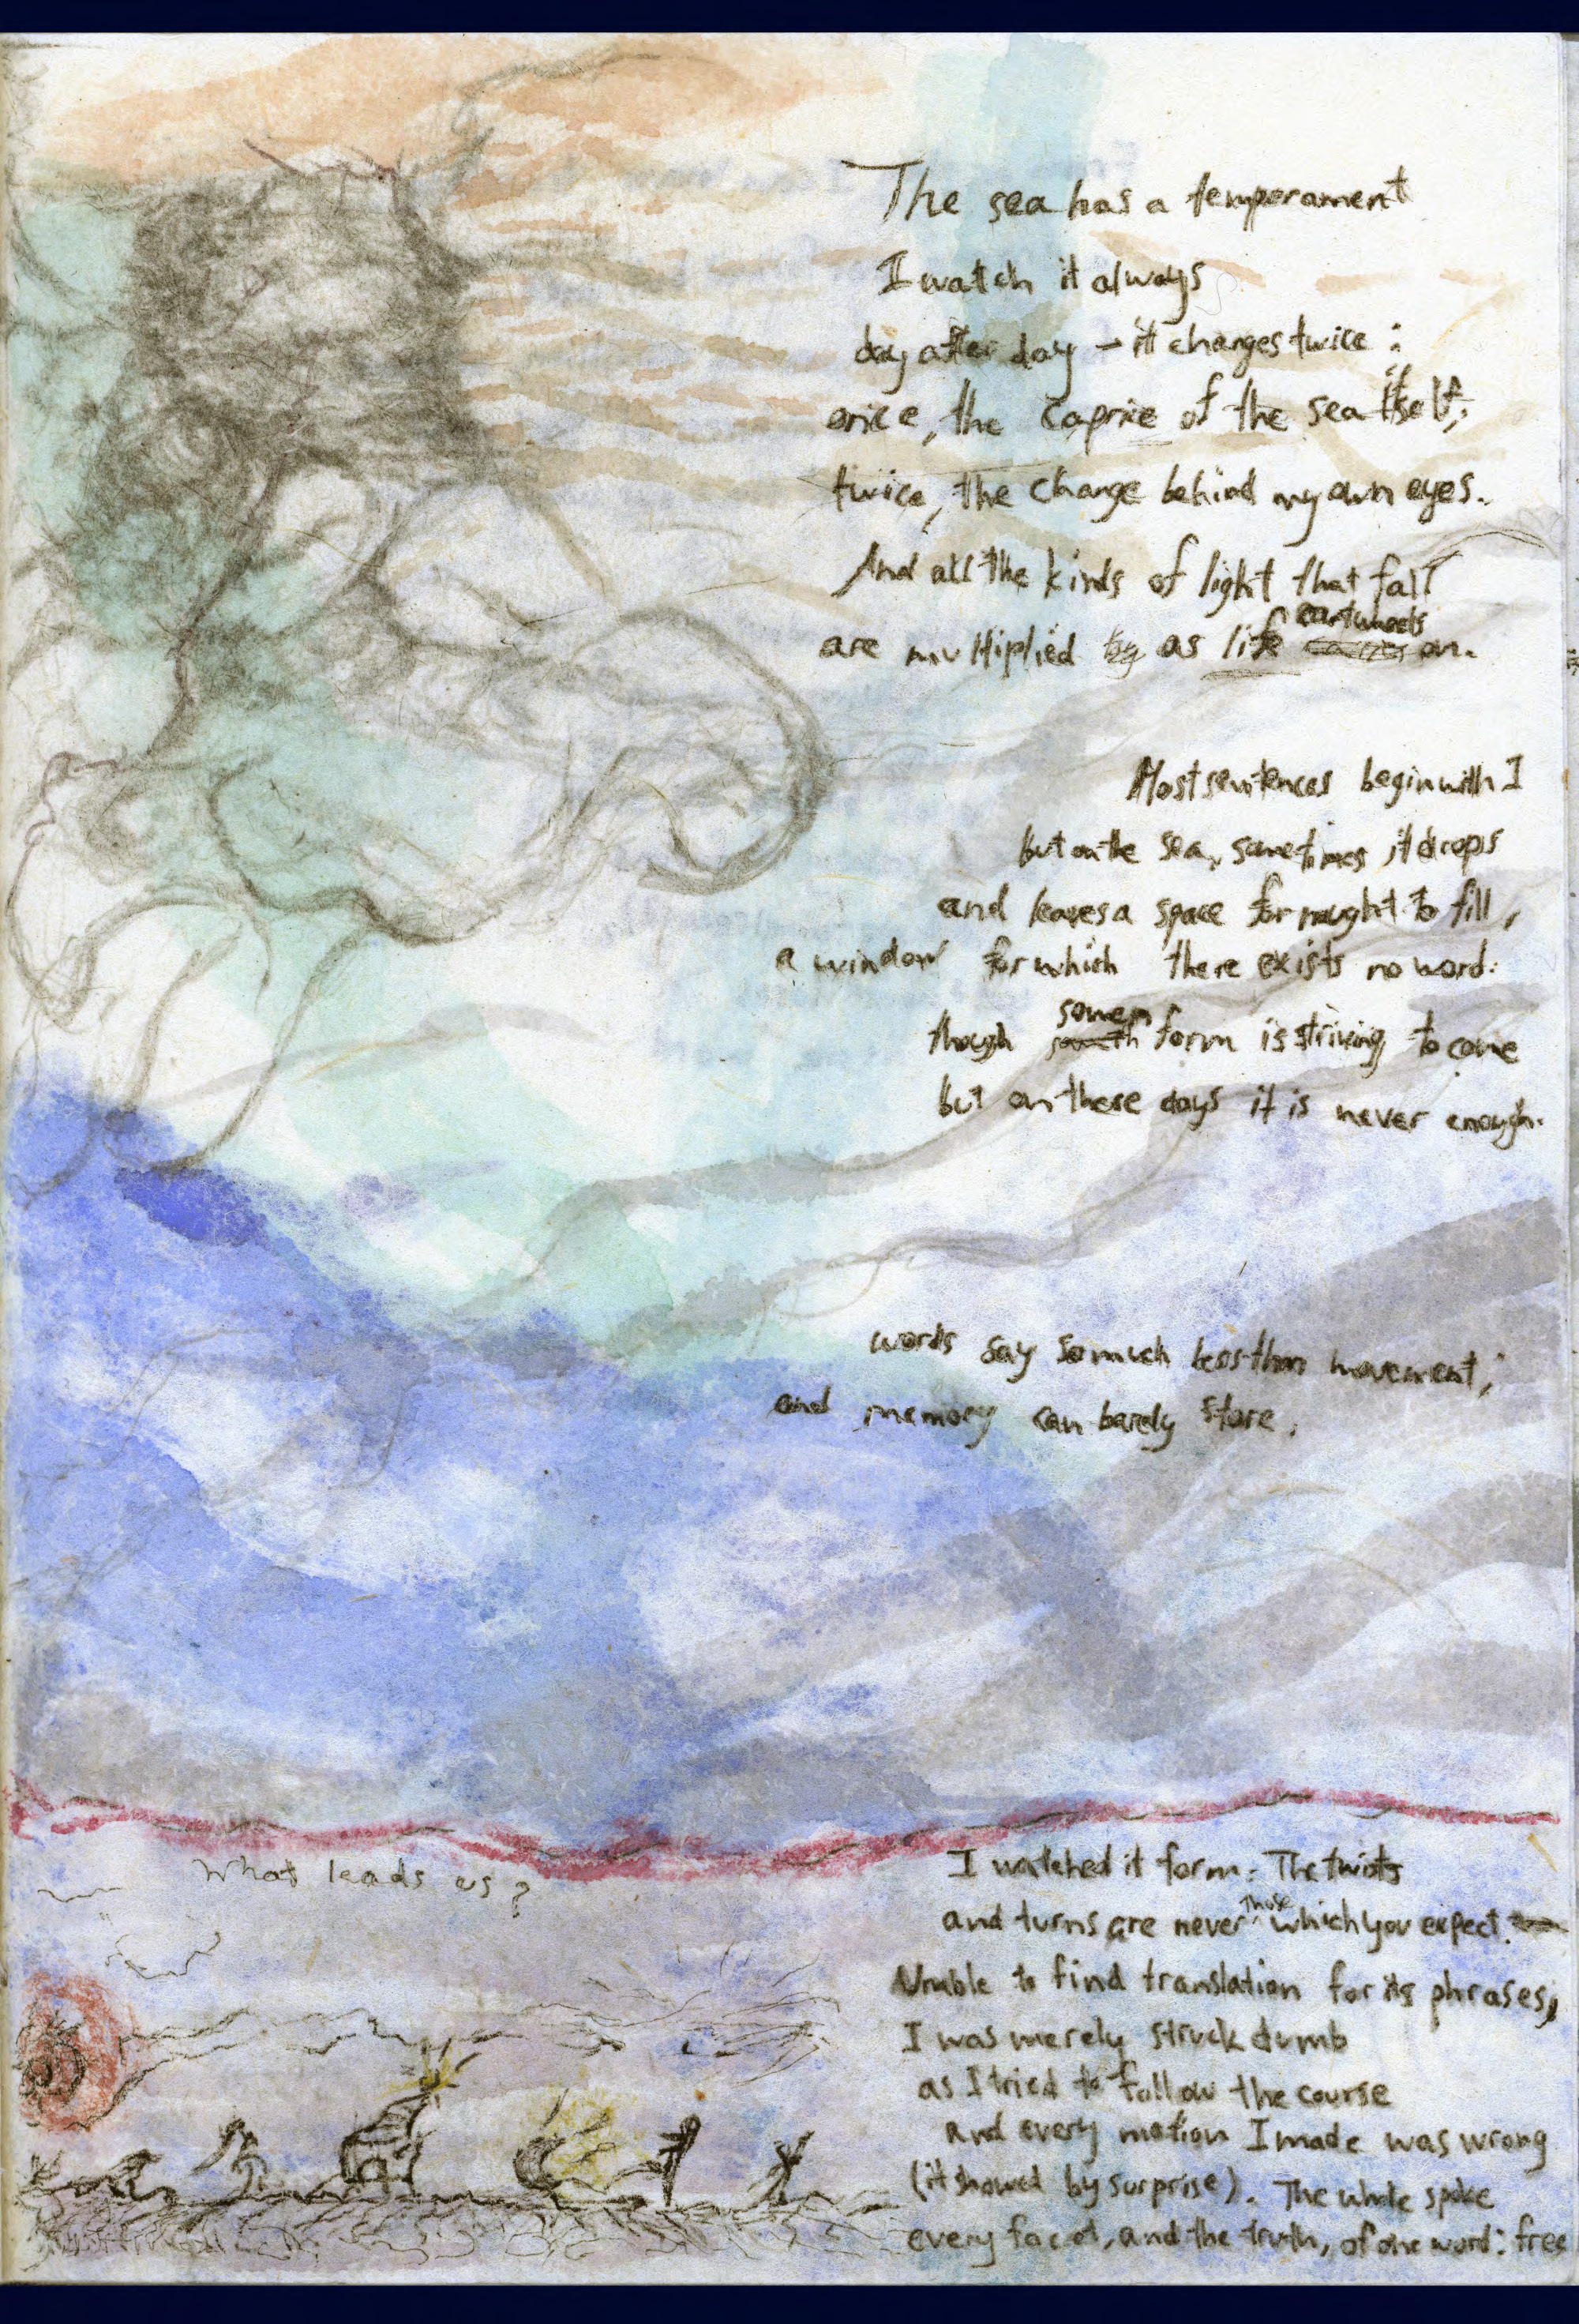 The sea has a temperament
I watch it always
day after day – it changes twice:
once, the caprice of the sea itself;
twice, the change behind my own eyes.
And all the kinds of light that fall
are multiplied by as life cartwheels on.
Most sentences begin with I
but on the sea, sometimes it drops
and leaves a space for naught to fill,
a window for which there exists no word.
though some form is striving to come
but on these days it is never enough.
words say so much less than movement;
and memory can barely store.
What leads us?
I watched it form. The twists
and turns are never those which you expect.
Unable to find translation for its phrases,
I was merely struck dumb
as I tried to follow the course
And every motion I made was wrong
(it showed by surprise). The whole spoke
every facet, and the truth, of one word: free